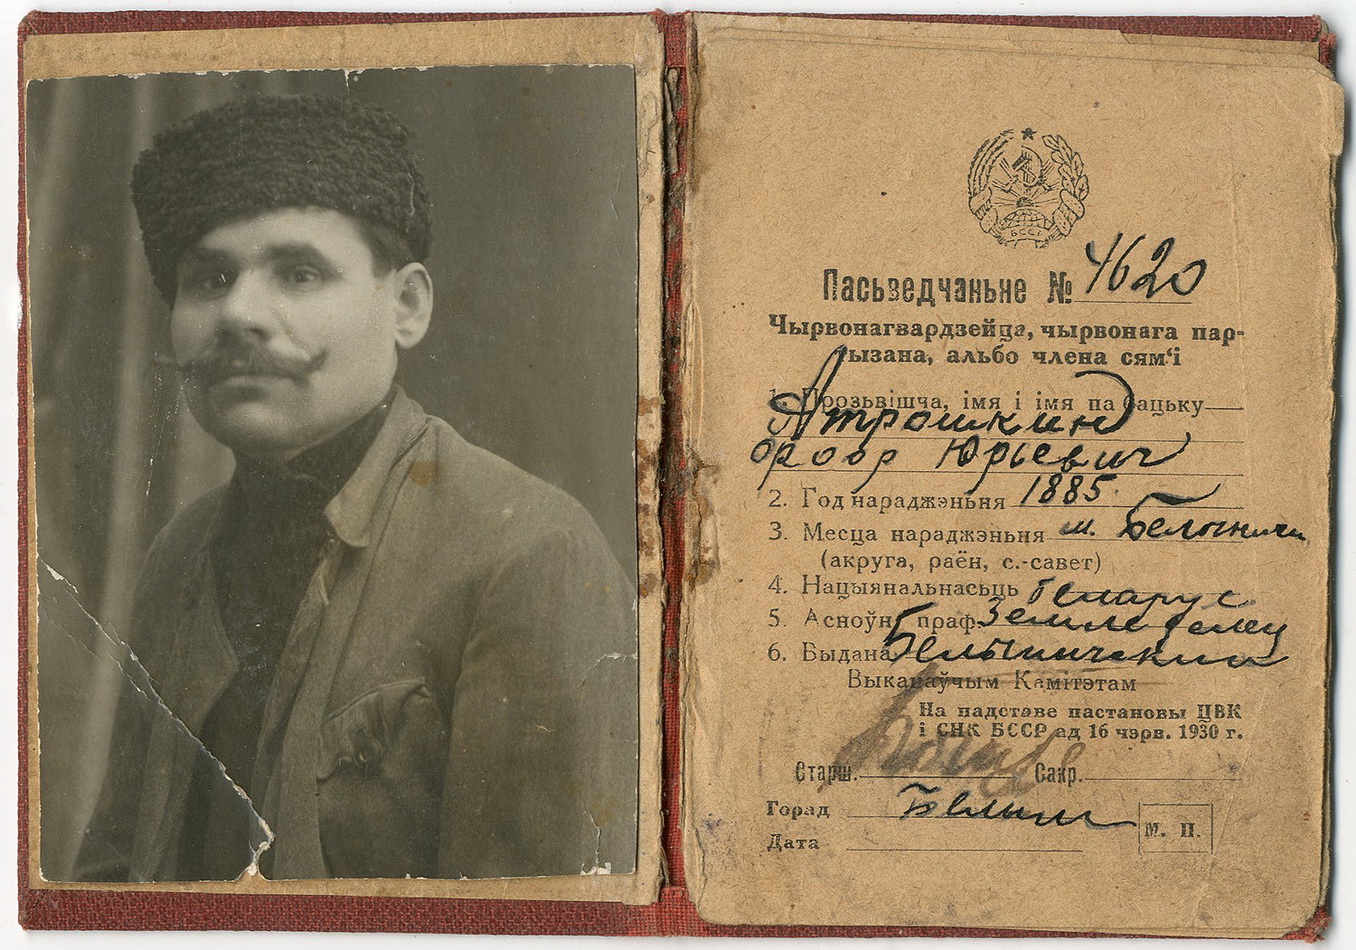 БССР
Пасьведчаньне № 4620
Чырвонагвардзейца, чырвонага пар-
тызана, альбо члена сям'і
1. Прозьвішча, імя і імя па бацьку
Атрошкин
Юрьевич
2. Год нараджэньня 1885
3. Месца нараджэньня м. Белыничи
(акруга, раён, с.-савет)
4. Нацыянальнасьць беларус
5. Асноўн. праф. Земледелец
6. Выдана Белыническим
Выканаўчым Камітэтам
На падставе пастановы ЦВК
і СНК БССР ад 16 чэрв. 1930 г.
Старш. Сакр.
Горад
Дата
М. П.